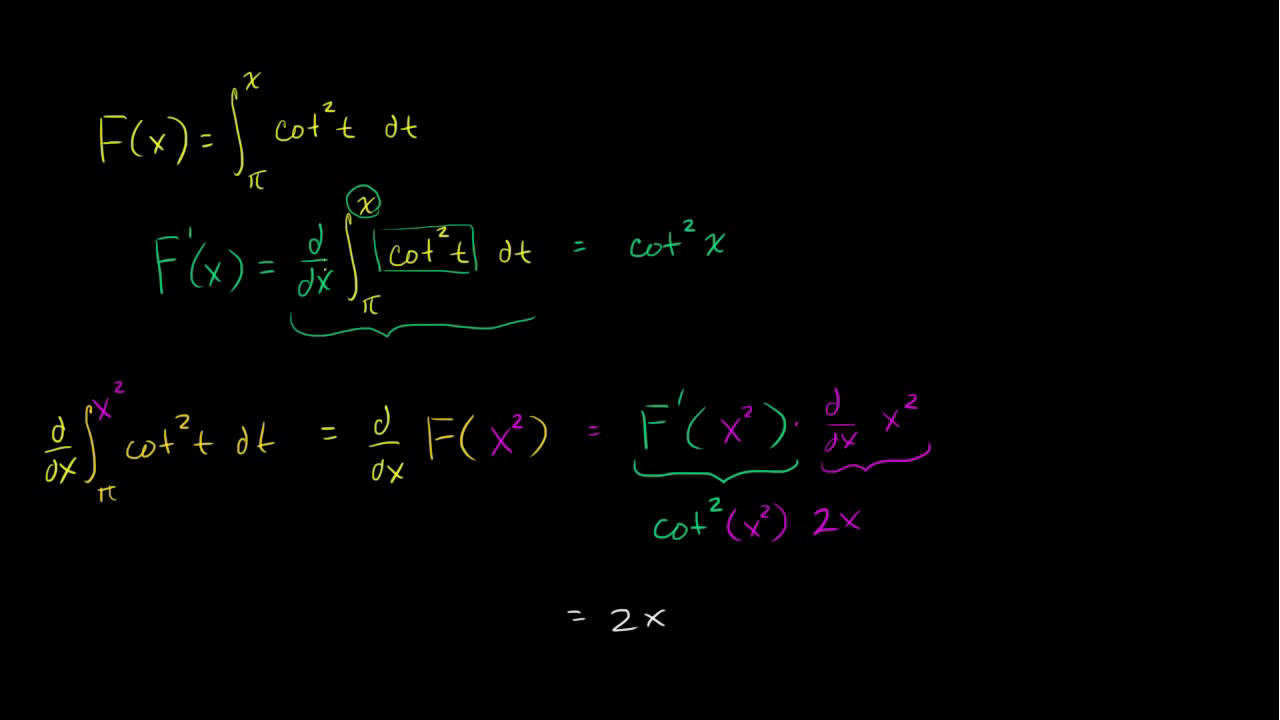 F(x) = ∫_π^x cot² t dt
F'(x) = d/dx ∫_π^x cot² t dt = cot² x
d/dx ∫_π^x² cot² t dt = d/dx F(x²) = F'(x²) · d/dx x²
cot² (x²) 2x
= 2x